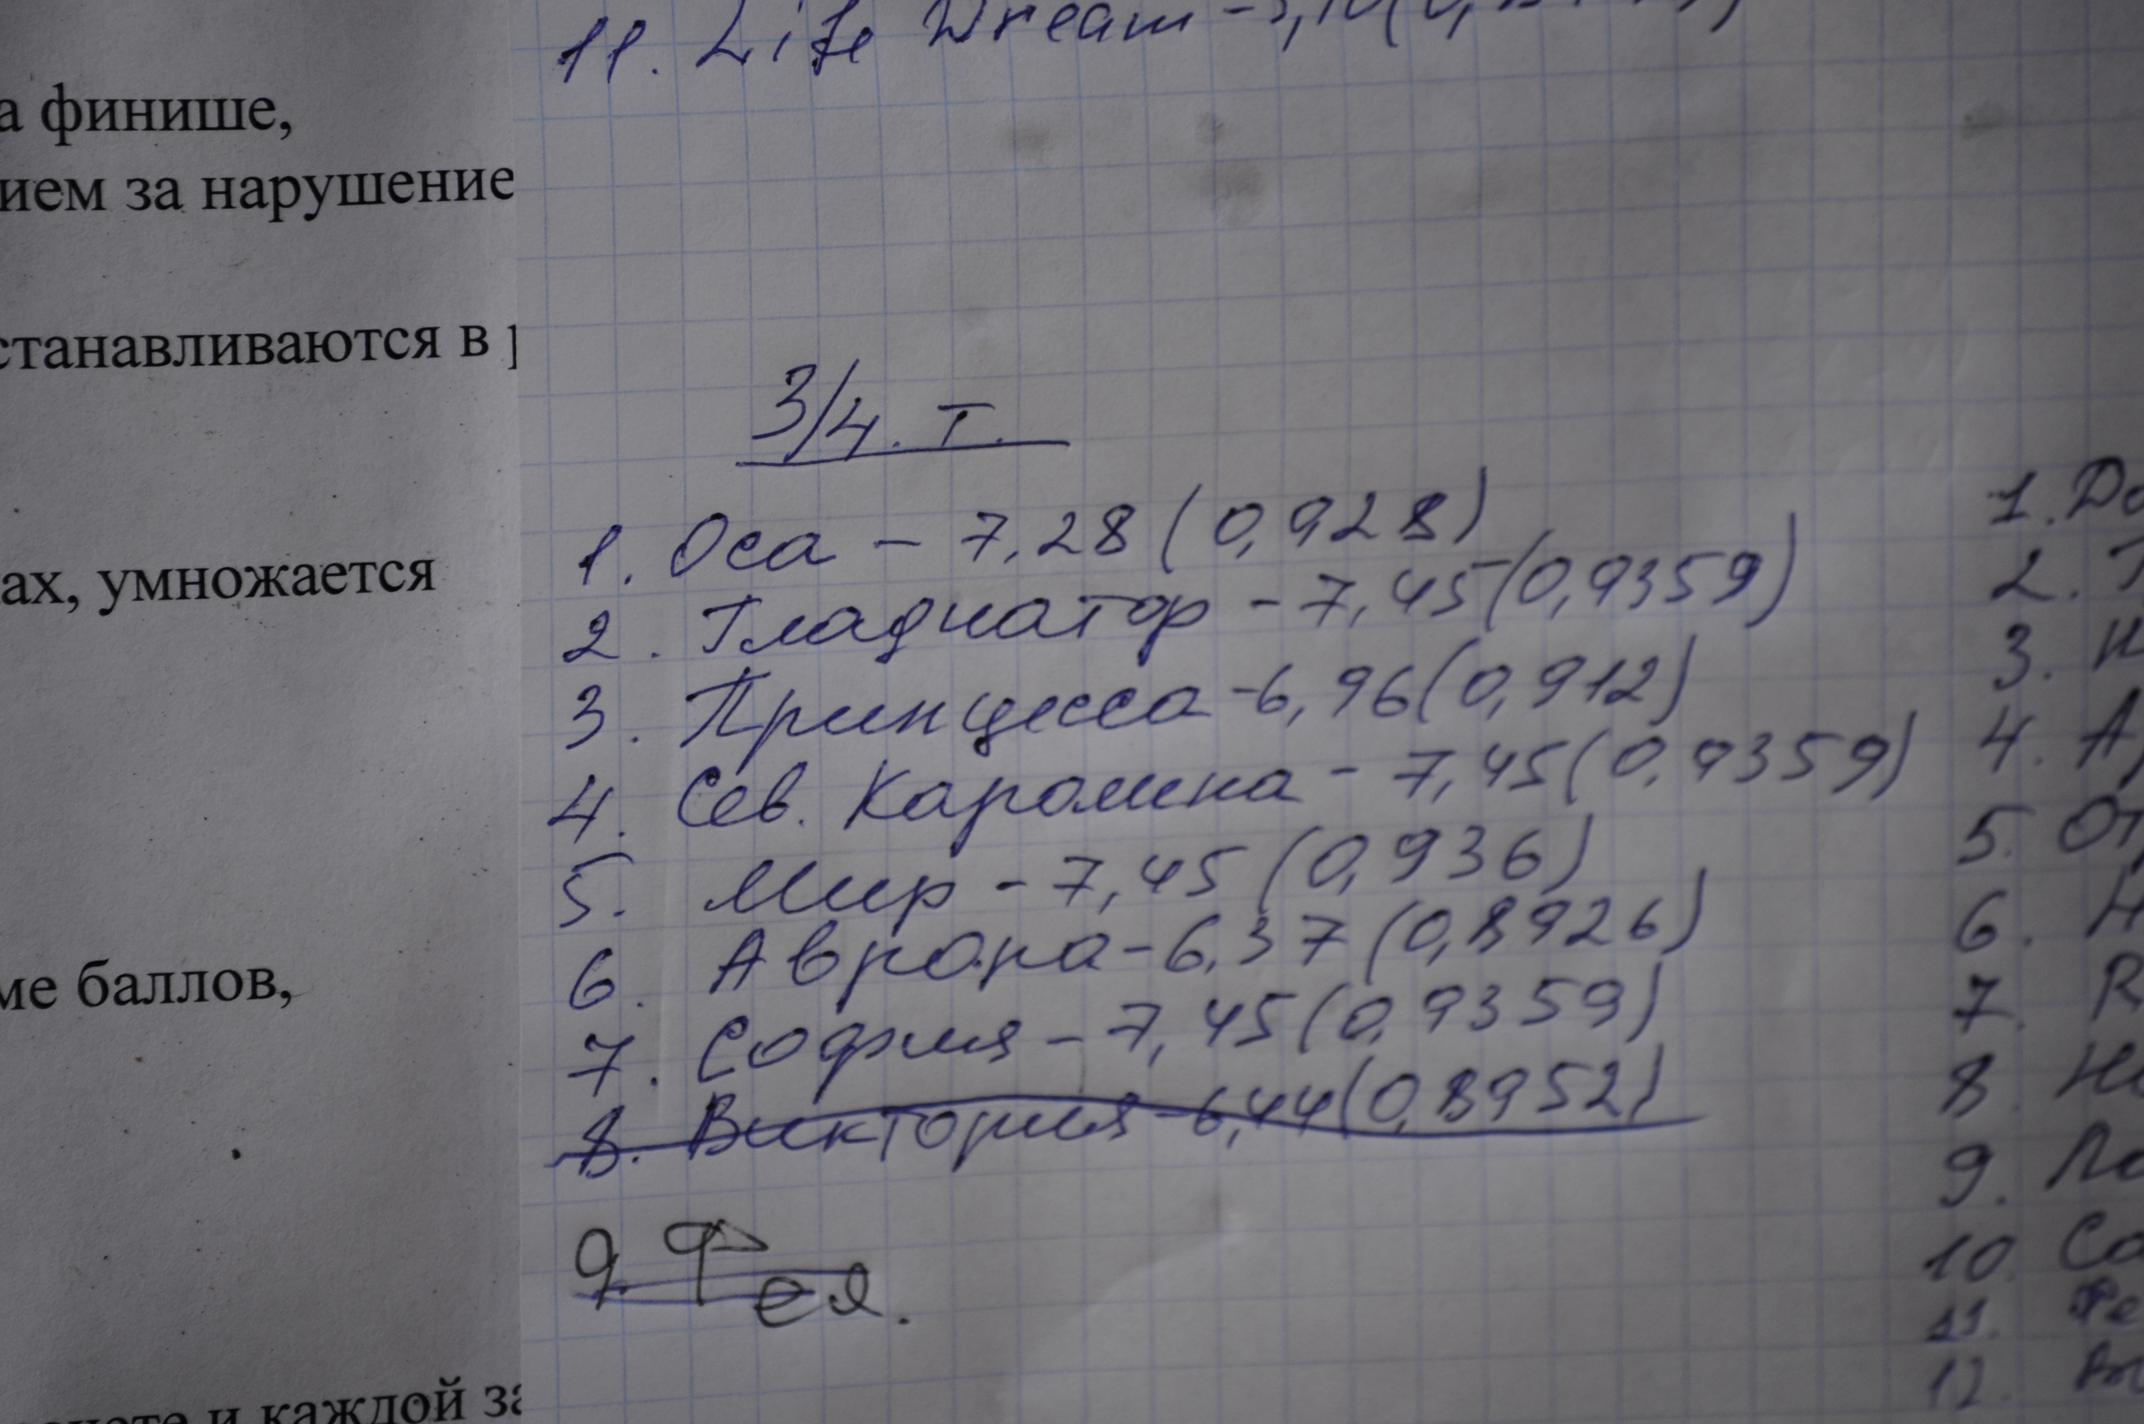 а финише,
ием за нарушение
станавливаются в
ах, умножается
ме баллов,
и каждой за
11. Life Dream
3/4. т.
1. Оса – 7,28 (0,928)
2. Гладиатор – 7,45 (0,9359)
3. Принцесса – 6,96 (0,912)
4. Сев. Каролина – 7,45 (0,9359)
5. Мир – 7,45 (0,936)
6. Аврора – 6,37 (0,8926)
7. София – 7,45 (0,9359)
8. Виктория – 6,44 (0,8952)
9. Фея.
1.
2.
3.
4.
5.
6.
7.
8.
9.
10.
11.
12.